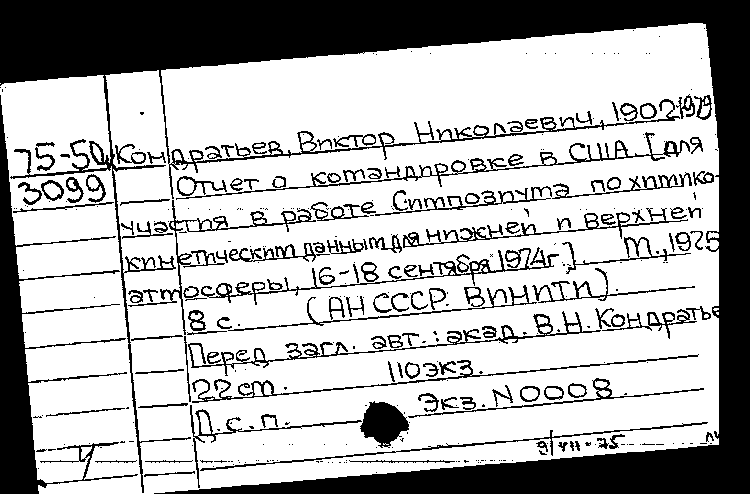 75-50 Кондратьев, Виктор Николаевич, 1902-1979
3099 Отчет о командировке в США [для
участия в работе Симпозиума по химико-
кинетическим данным для нижней и верхней
атмосферы, 16-18 сентября 1974г.]. М., 1975
8 с. (АН СССР. ВИНИТИ).
Перед загл. авт.: акад. В.Н. Кондратье
22 см. 110 экз.
Д.с.п. Экз. N 0008.
9/VII-75